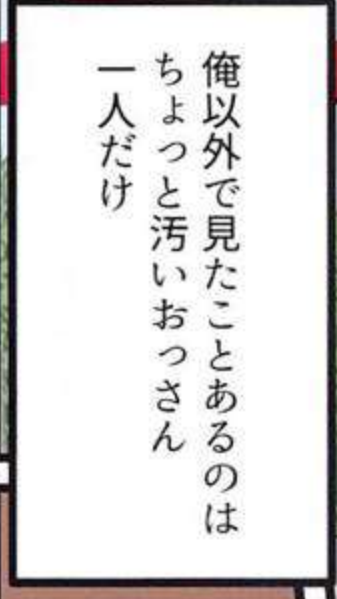 俺以外で見たことあるのは
ちょっと汚いおっさん
一人だけ